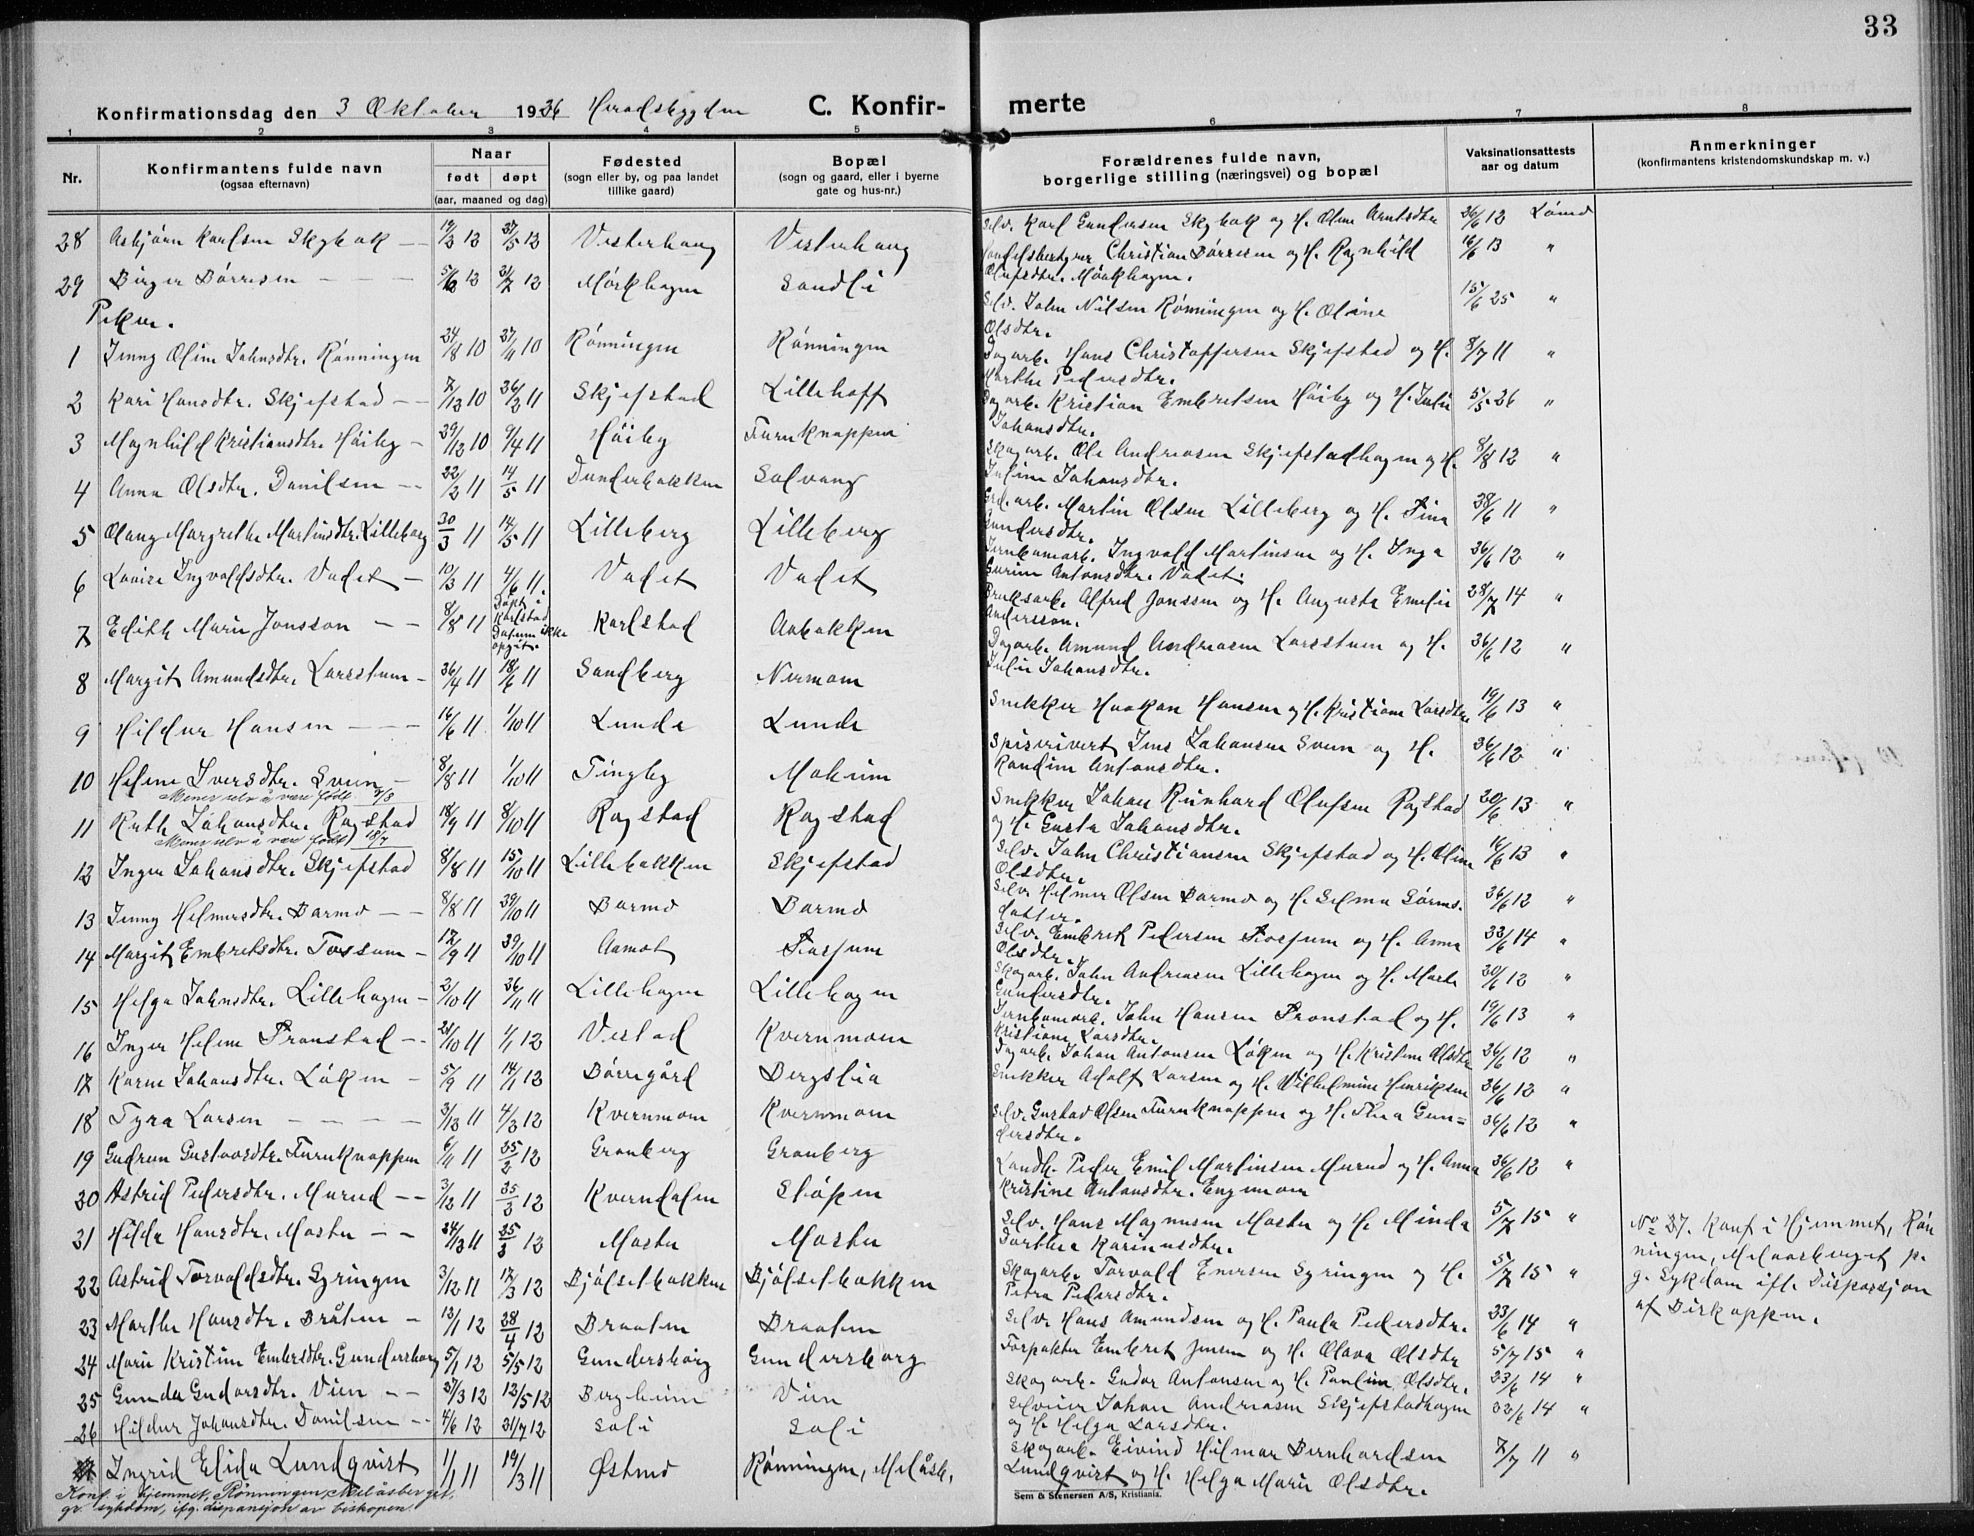 33
Konfirmationsdag den 3 Oktober 1926 Heradsbygden C. Konfir- merte
1 2 3 4 5 6 7 8
Nr. Konfirmantens fulde navn (ogsaa efternavn) Naar født døpt (aar, maaned og dag) Fødested (sogn eller by, og paa landet tillike gaard) Bopæl (sogn og gaard, eller i byerne gate og hus-nr.) Forældrenes fulde navn, borgerlige stilling (næringsvei) og bopæl Vaksinationsattests aar og datum Anmerkninger (konfirmantens kristendomskundskap m. v.)
28 Asbjørn Karlsen Skybak 12 27/5 12 Vesterhaug Vesterhaug Selv. Karl Gundersen Skybak og H. Oline Arntsdtr 26/6 12
29 Birger Børresen 12 31/7 12 Mørkhagen Sandli Christian Børresen og H. Ragnhild Olufsdtr. Mørkhagen. 16/6 13 "
Piker.
1 Jenny Oline Johnsdtr. Rønningen 24/8 10 27/11 10 Rønningen Rønningen Selv. John Nilsen Rønningen og H. Oline Olsdtr. 15/6 25 "
2 Kari Hansdtr. Skjefstad 7/12 10 26/2 11 Skjefstad Lillehoff Dagarb. Hans Christoffersen Skjefstad og H. Marthe Pedersdtr. 8/7 11 "
3 Magnhild Kristiansdtr. Høiby 29/12 10 9/4 11 Høiby Furuknappen Dagarb. Kristian Embretsen Høiby og H. Julie Johansdtr. 5/5 26 "
4 Anna Olsdtr. Danilsen 22/2 11 14/5 11 Dunderbakken Solvang Skogarb. Ole Andreasen Skjefstadhagen og H. Juline Johansdtr. 8/8 12 "
5 Olaug Margrethe Martinsdtr. Lilleberg 30/3 11 14/5 11 Lilleberg Lilleberg Martin Olsen Lilleberg og H. Fina Gundersdtr. 28/6 11 "
6 Lovise Ingvaldsdtr. Vadet 10/3 11 4/6 11. Vadet Vadet Jernbanearb. Ingvald Martinsen og H. Inga Gurine Antonsdtr. Vadet. 26/6 12 "
7 Edith Marie Jonsson 8/8 11 Døpt i Karlstad Datum ikke opgit. Karlstad Aabakken Bruksarb. Alfred Jonssen og H. Augusta Emilie Andersson. 28/7 14 "
8 Margit Amundsdtr. Larsstuen 26/4 11 18/6 11 Sandberg Nermoen Dagarb. Amund Andreasen Larsstuen og H. Julie Johansdtr. 26/6 12 "
9 Hildur Hansen 16/6 11 1/10 11 Lunde Lunde Snekker Haakon Hansen og H. Kristiane Larsdtr 19/6 13 "
10 Helene Iversdtr. Sveen 8/8 11 1/10 11 Tingby Moheim Jens Johansen Sveen og H. Randine Antonsdtr. 26/6 12 "
Mener selv å være født 7/8
11 Ruth Johansdtr. Rogstad 18/9 11 8/10 11 Rogstad Rogstad Snekker Johan Reinhard Olufsen Rogstad og H. Gusta Johansdtr. 20/6 13 "
Mener selv å være født 18/7
12 Inger Johansdtr. Skjefstad 8/8 11 15/10 11 Lillebakken Skjefstad Selv. John Christiansen Skjefstad og H. Oline Olsdtr. 16/6 13 "
13 Jenny Helmersdtr. Barmo 8/8 11 29/10 11 Barmo Barmo Selv. Helmer Olsen Barmo og H. Selma Sørensdatter. 26/6 12 "
14 Margit Embretsdtr. Fossum 12/9 11 29/10 11 Aamot Fossum Selv. Embret Pedersen Fossum og H. Anna Olsdtr. 23/6 14 "
15 Helga Johnsdtr. Lillehagen 2/10 11 26/11 11 Lillehagen Lillehagen Skogarb. John Andreasen Lillehagen og H. Marte Gundersdtr. 20/6 12 "
16 Inger Helene Fronstad 21/10 11 1/1 12 Vestad Kvernmoen Jernbanearb. John Hansen Fronstad og H. Kristiane Larsdtr. 19/6 13 "
17 Karen Johansdtr. Løken 5/9 11 14/1 12 Børregård Bergslia Dagarb. Johan Antonsen Løken og H. Kristine Olsdtr 26/6 12 "
18 Tyra Larsen 3/12 11 4/2 12 Kvernmoen Kvernmoen Snekker Adolf Larsen og H. Vilhelmine Henriksen 26/6 12 "
19 Gudrun Gustavsdtr. Furuknappen 6/11 11 25/2 12 Granberg Granberg Selv. Gustav Olsen Furuknappen og H. Thea Gundersdtr. 26/6 12 "
20 Astrid Pedersdtr. Murud 3/12 11 25/3 12 Kverndalen Støpen Landh. Peder Emil Martinsen Murud og H. Anna Kristine Antonsdtr. Engemoen 26/6 12 "
21 Hilda Hansdtr. Moster 24/12 11 25/3 12 Moster Moster Selv. Hans Magnusen Moster og H. Minda Dorthea Karinusdtr. 5/7 15 "
22 Astrid Torvaldsdtr. Syringen 3/12 11 17/3 12 Bjølsetbakken Bjølsetbakken Skogarb. Torvald Enersen Syringen og H. Petra Pedersdtr. 5/7 15 "
23 Marthe Hansdtr. Bråten 13/1 12 28/4 12 Braaten Braaten Selv. Hans Amundsen og H. Paula Pedersdtr. 23/6 14 "
24 Marie Kristine Embretsdtr. Gundersborg 5/1 12 5/5 12 Gundersborg Gundersborg Forpakter Embret Jensen og H. Olava Olsdtr 5/7 15 "
25 Gunda Gudorsdtr. Vien 27/3 12 12/5 12 Bergheim Vien Skogarb. Gudor Antonsen og H. Pauline Olsdtr. 23/6 14 "
26 Hildur Johansdtr. Danilsen 4/6 12 21/7 12 Soli Soli Selveier Johan Andreasen Skjefstadhagen og H. Helga Larsdtr. 23/6 14 "
27 Ingrid Elida Lundqvist 1/1 11 19/3 11 Østmo Rønningen, Melåsb. Skogarb. Eivind Hilmar Bernhardsen Lundqvist og H. Helga Marie Olsdtr. 7/7 11 "
Konf. i hjemmet, Rønningen, Melåsberget
gr. sykdom, ifg. dispensasjon av biskopen.
No 27. Konf i Hjemmet, Røn
ningen, Melaasberget p.
g. sykdom ifl. Dispensasjon
af Biskoppen.
Sem & Stenersen A/S, Kristiania.